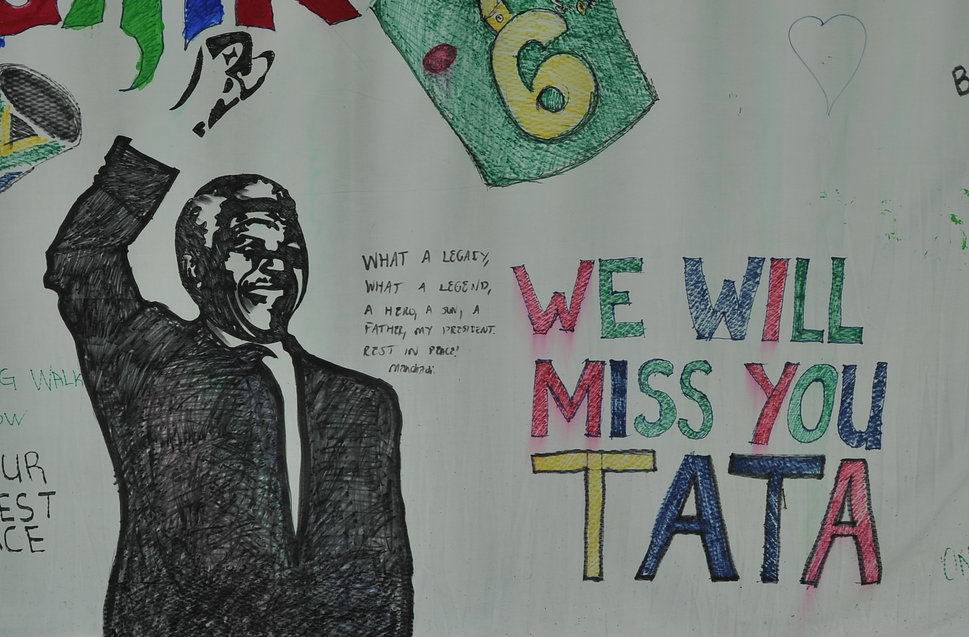 6
WHAT A LEGACY,
WHAT A LEGEND,
A HERO, A SON, A
FATHER, MY PRESIDENT.
REST IN PEACE!
WE WILL
MISS YOU
TATA
G WALK
OW
UR
EST
ACE
B